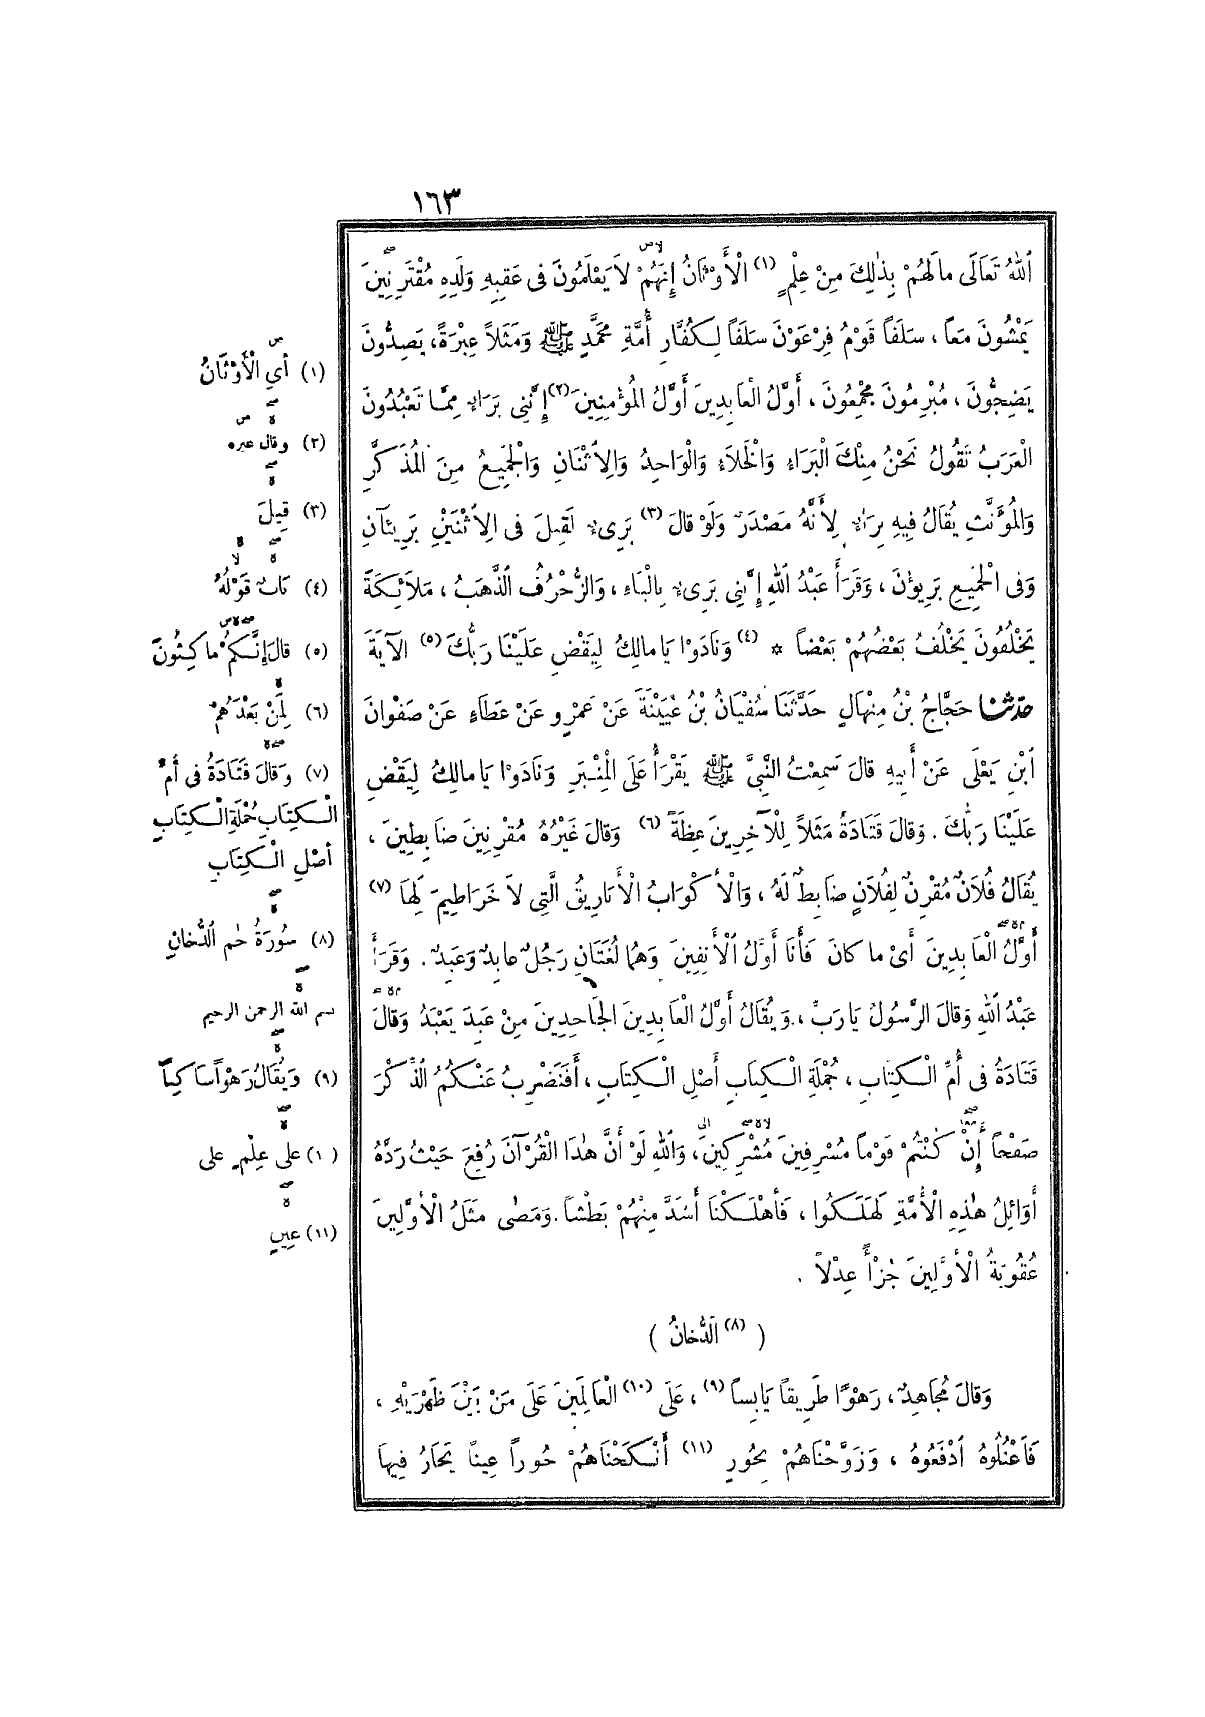 ١٦٣
اللهُ تَعَالَى مالَهُمْ بِذٰلِكَ مِنْ عِلْمٍ (١) الْأَوْثَانُ إِنَّهُمْ لاَ يَعْلَمُونَ فى عَقِبِهِ وَلَدِهِ مُقْتَرِنِينَ
يَمْشُونَ مَعاً ، سَلَفاً قَوْمُ فِرْعَوْنَ سَلَفاً لِكُفَّارِ أُمَّةِ مُحَمَّدٍ ﷺ وَمَثَلاً عِبْرَةً، يَصِدُّونَ
يَضِجُّونَ ، مُبْرِمُونَ مُجْمِعُونَ ، أَوَّلُ الْعَابِدِينَ أَوَّلُ المُؤْمِنِينَ (٢) إِنَّنِى بَرَاءٌ مِمَّا تَعْبُدُونَ
الْعَرَبُ تَقُولُ نَحْنُ مِنْكَ الْبَرَاءُ وَالْخَلاَءُ وَالْوَاحِدُ وَالِاثْنَانِ وَالْجَمِيعُ مِنَ الْمُذَكَّرِ
وَالمُؤَنَّثِ يُقَالُ فِيهِ بَرَاءٌ لِأَنَّهُ مَصْدَرٌ وَلَوْ قالَ (٣) بَرِىءٌ لَقِيلَ فى الِاثْنَيْنِ بَرِيئَانِ
وَفى الْجَمِيعِ بَرِيؤُنَ ، وَقَرَأَ عَبْدُ اللهِ إِنَّنِى بَرِىءٌ بِالْيَاءِ ، وَالزُّخْرُفُ الذَّهَبُ ، مَلاَئِكَةً
يَخْلُفُونَ يَخْلُفُ بَعْضُهُمْ بَعْضاً * (٤) وَنَادَوْا يَا مالِكُ لِيَقْضِ عَلَيْنَا رَبُّكَ (٥) الآيَةَ
حَدَّثَنَا حَجَّاجُ بْنُ مِنْهَالٍ حَدَّثَنَا سُفْيَانُ بْنُ عُيَيْنَةَ عَنْ عَمْرٍو عَنْ عَطَاءٍ عَنْ صَفْوَانَ
ابْنِ يَعْلَى عَنْ أَبِيهِ قالَ سَمِعْتُ النَّبِىَّ ﷺ يَقْرَأُ عَلَى الْمِنْبَرِ وَنَادَوْا يَا مالِكُ لِيَقْضِ
عَلَيْنَا رَبُّكَ . وَقالَ قَتَادَةُ مَثَلاً لِلْآخِرِينَ عِظَةً (٦) وَقالَ غَيْرُهُ مُقْرِنِينَ ضَابِطِينَ ،
يُقَالُ فُلَانٌ مُقْرِنٌ لِفُلَانٍ ضَابِطٌ لَهُ ، وَالْأَكْوَابُ الْأَبَارِيقُ الَّتِى لاَ خَرَاطِيمَ لَهَا (٧)
أَوَّلُ الْعَابِدِينَ أَىْ ما كانَ فَأَنَا أَوَّلُ الْأَنِفِينَ وَهُمَا لُغَتَانِ رَجُلٌ عابِدٌ وَعَبِدٌ . وَقَرَأَ
عَبْدُ اللهِ وَقالَ الرَّسُولُ يَا رَبِّ ، وَيُقَالُ أَوَّلُ الْعَابِدِينَ الجَاحِدِينَ مِنْ عَبِدَ يَعْبَدُ وَقالَ
قَتَادَةُ فى أُمِّ الْكِتَابِ ، جُمْلَةِ الْكِتَابِ أَصْلِ الْكِتَابِ ، أَفَنَضْرِبُ عَنْكُمُ الذِّكْرَ
صَفْحاً أَنْ كُنْتُمْ قَوْماً مُسْرِفِينَ مُشْرِكِينَ، وَاللهِ لَوْ أَنَّ هٰذَا الْقُرْآنَ رُفِعَ حَيْثُ رَدَّهُ
أَوَائِلُ هٰذِهِ الْأُمَّةِ لَهَلَكُوا ، فَأَهْلَكْنَا أَشَدَّ مِنْهُمْ بَطْشاً . وَمَضٰى مَثَلُ الْأَوَّلِينَ
عُقُوبَةُ الْأَوَّلِينَ جُزْأً عِدْلاً .
( (٨) الدُّخانُ )
وَقالَ مُجَاهِدٌ ، رَهْوًا طَرِيقاً يَابِساً (٩) ، عَلَى (١٠) الْعَالَمِينَ عَلَى مَنْ بَيْنَ ظَهْرَيْهِ ،
فَاعْتُلُوهُ ادْفَعُوهُ ، وَزَوَّجْنَاهُمْ بِحُورٍ (١١) أَنْكَحْنَاهُمْ حُوراً عِيناً يَحَارُ فِيهَا
(١) أىِ الْأَوْثَانُ
(٢) وقال غيره
(٣) قِيلَ
(٤) بَابٌ قَوْلُهُ
(٥) قالَ إِنَّكُمْ ماكِثُونَ
(٦) لِمَنْ بَعْدَهُمْ
(٧) وَقالَ قَتَادَةُ فى أُمِّ
الْكِتَابِ جُمْلَةِ الْكِتَابِ
أَصْلِ الْكِتَابِ
(٨) سُورَةُ حٰم الدُّخانِ
بسم الله الرحمن الرحيم
(٩) وَيُقَالُ رَهْواً سَاكِناً
(١٠) عَلَى عِلْمٍ على
(١١) عِينٍ